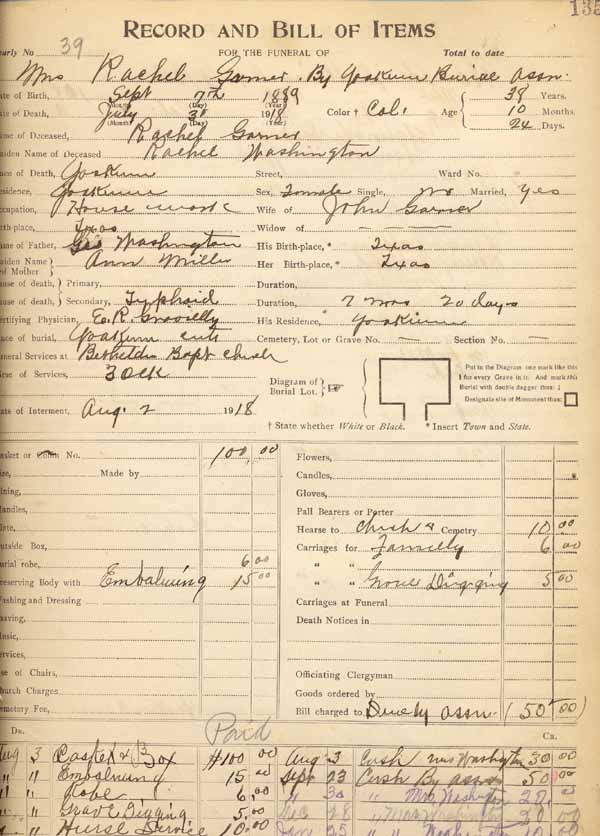 135
RECORD AND BILL OF ITEMS
early No 39 FOR THE FUNERAL OF Total to date
Mrs Rachel Garner. By Yoakum Burial Assn.
ate of Birth, Sept 7th 1889 38 Years.
(Month) (Day) (Year) Color † Col. Age 10 Months.
ate of Death, July 31 1918 24 Days.
(Month) (Day) (Year)
ame of Deceased, Rachel Garner
aiden Name of Deceased Rachel Washington
ace of Death, Yoakum Street, Ward No.
esidence, Yoakum Sex, Female Single, no Married, yes
ccupation, House work Wife of John Garner
irth-place, Texas Widow of — — — —
ame of Father, Geo Washington His Birth-place, * Texas
aiden Name of Mother Ann Miller Her Birth-place, * Texas
ause of death, Primary, Duration,
ause of death, Secondary, Typhoid Duration, 7 mos 20 days
ertifying Physician, E. R. Duration His Residence, Yoakum
ace of burial, Yoakum Cemetery, Lot or Grave No. — Section No. —
uneral Services at Bapt church
ime of Services, 3 Ock
Diagram of Burial Lot.
Put in the Diagram one mark like this
| for every Grave in it. And mark this
Burial with double dagger thus: ‡
Designate site of Monument thus:
ate of Interment, Aug. 2 1918
† State whether White or Black. * Insert Town and State.
asket or Coffin No. 100.00 Flowers,
ize, Made by Candles,
ining, Gloves,
andles, Pall Bearers or Porter
late, Hearse to Church & Cemetry 10.00
utside Box, Carriages for Family 6 00
urial robe, 6 00 " "
reserving Body with Embalming 15 00 " " Grave Digging 5 00
ashing and Dressing Carriages at Funeral
having, Death Notices in
usic,
ervices,
se of Chairs, Officiating Clergyman
hurch Charges Goods ordered by
emetery Fee, Bill charged to assn. (50.00)
Paid
Dr. Cr.
Aug 3 Casket & Box $100 00 Aug 3 Cash Mrs Washington 50 00
" " Embalming 15 00 Sept 23 Cash By assn 50 00
" " Robe 6.00 " 30 " Mrs. Washington 28.
" " Grave Digging 5.00 Dec 28 " Mrs Washington 20 00
" " Hurse Service 10.00 Jan 25 "